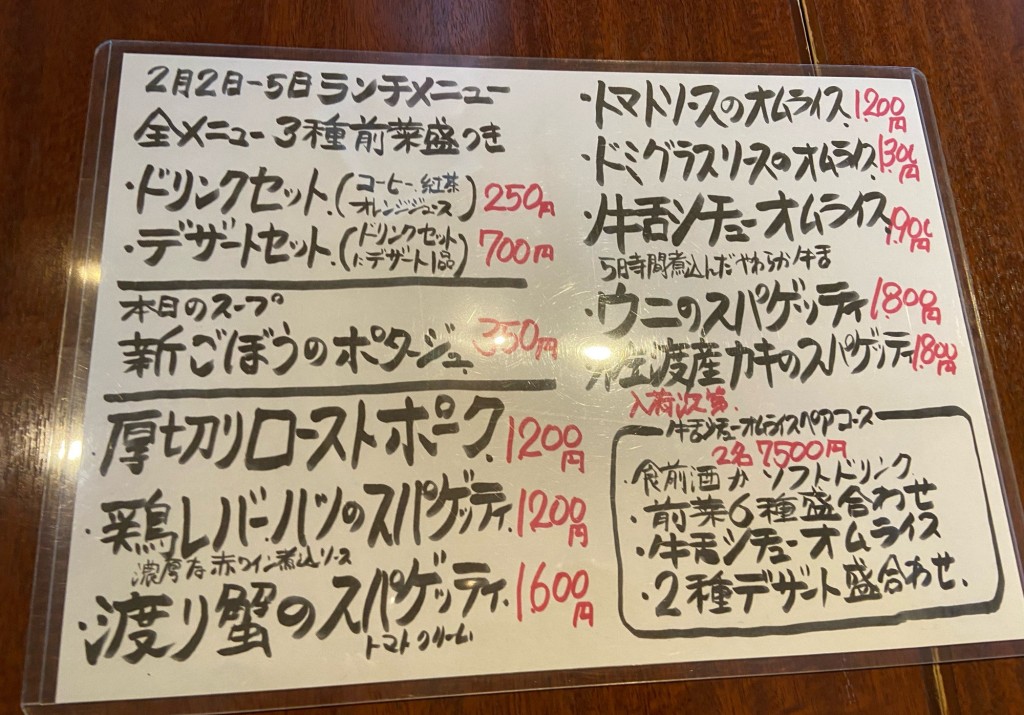 2月2日-5日ランチメニュー
全メニュー3種前菜盛つき
・ドリンクセット.(コーヒー、紅茶 オレンジジュース) 250円
・デザートセット.(ドリンクセットにデザート1品) 700円
本日のスープ
新ごぼうのポタージュ 350円
厚切りローストポーク 1200円
・鶏レバーハツのスパゲッティ. 1200円
濃厚な赤ワイン煮込ソース
・渡り蟹のスパゲッティ. 1600円
トマトクリーム
・トマトソースのオムライス. 1200円
・ドミグラスソースのオムライス. 1300円
・牛舌シチューオムライス 1900円
5日時間煮込んだやわらか牛舌
・ウニのスパゲッティ 1.800円
佐渡産カキのスパゲッティ 1800円
入荷次第.
牛舌シチューオムライスペアコース
2名7500円
・食前酒かソフトドリンク
・前菜6種盛合わせ
・牛舌シチューオムライス
・2種デザート盛合わせ.